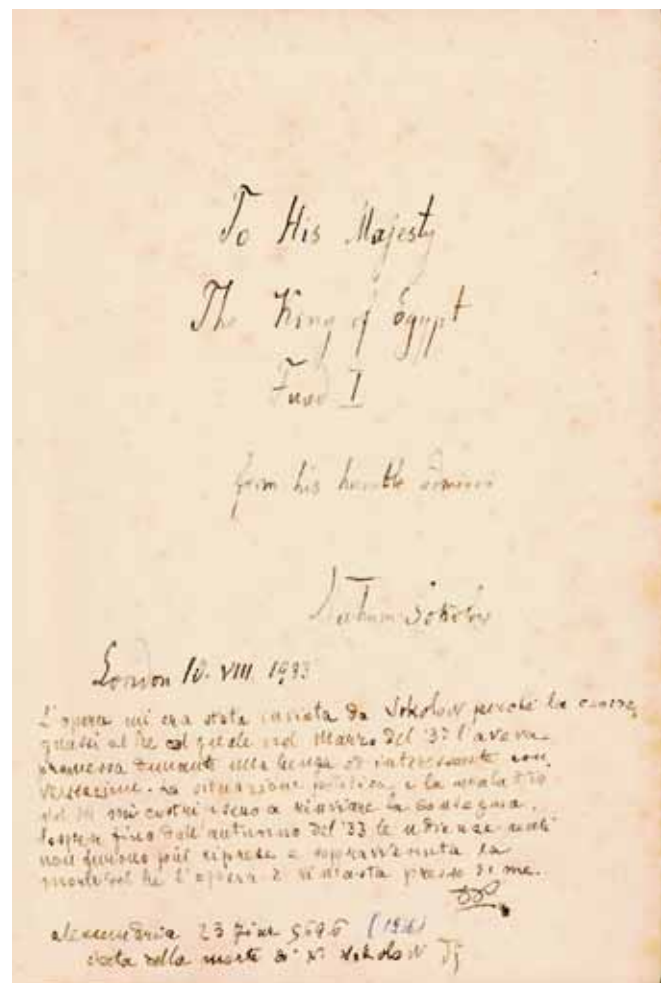 To His Majesty
The King of Egypt
Fuad I
from his humble
Nahum Sokolow
London 10. VIII. 1933
L'opera mi era stata inviata da Sokolow perché la conse,
gnassi al Re col quale nel Marzo del '33 l'aveva
promessa durante una lunga ed interessante con
versazione. La situazione politica, e la malattia
del Re mi costrinsero a rinviare la consegna.
fino dall'autunno del '33 le udienze reali
non furono più riprese e sopravvenuta la
morte del Re l'opera è rimasta presso di me.
Alessandria 23 Jiar 5696 (1936)
data della morte di N. Sokolow